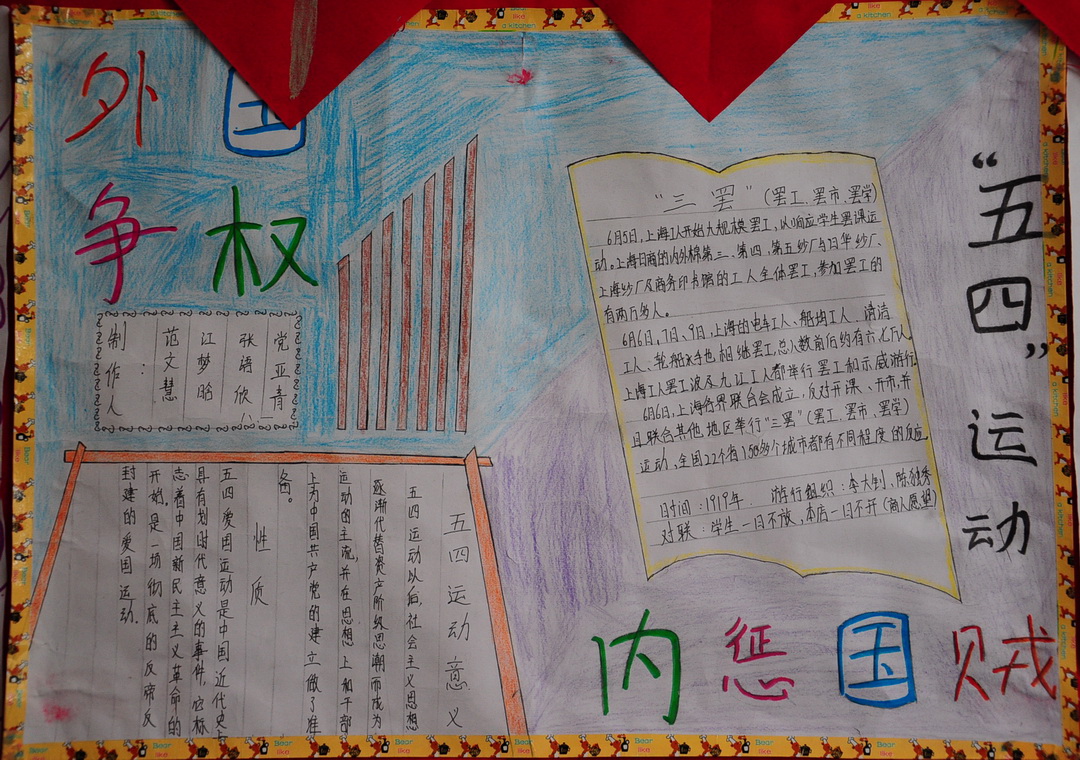 外国
争权
制作人：
范文慧
江梦晗
张语欣
党亚青
“五四”运动
“三罢”（罢工、罢市、罢学）
6月5日，上海工人开始大规模罢工，以响应学生罢课运
动。上海日商的内外棉第三、第四、第五纱厂与日华纱厂、
上海纱厂及商务印书馆的工人全体罢工，参加罢工的
有两万多人。
6月6日，7日、9日，上海的电车工人、船坞工人、清洁
工人、轮船水手也相继罢工，总人数前后约有六七万人
上海工人罢工波及九江工人都举行罢工和示威游行。
6月6日，上海各界联合会成立，反对开课、开市，并
且联合其他地区举行“三罢”（罢工、罢市、罢学）
运动，全国22个省150多个城市都有不同程度的反应
日时间：1919年. 游行组织：李大钊、陈独秀
对联：学生一日不放，本店一日不开（商人愿望）
五四运动意义
五四运动以后，社会主义思想
逐渐代替资产阶级思潮而成为
运动的主流，并在思想上和干部
上为中国共产党的建立做了准
备。
性质
五四爱国运动是中国近代史上
具有划时代意义的事件，它标
志着中国新民主主义革命的
开始。是一场彻底的反帝反
封建的爱国运动.
内惩国贼